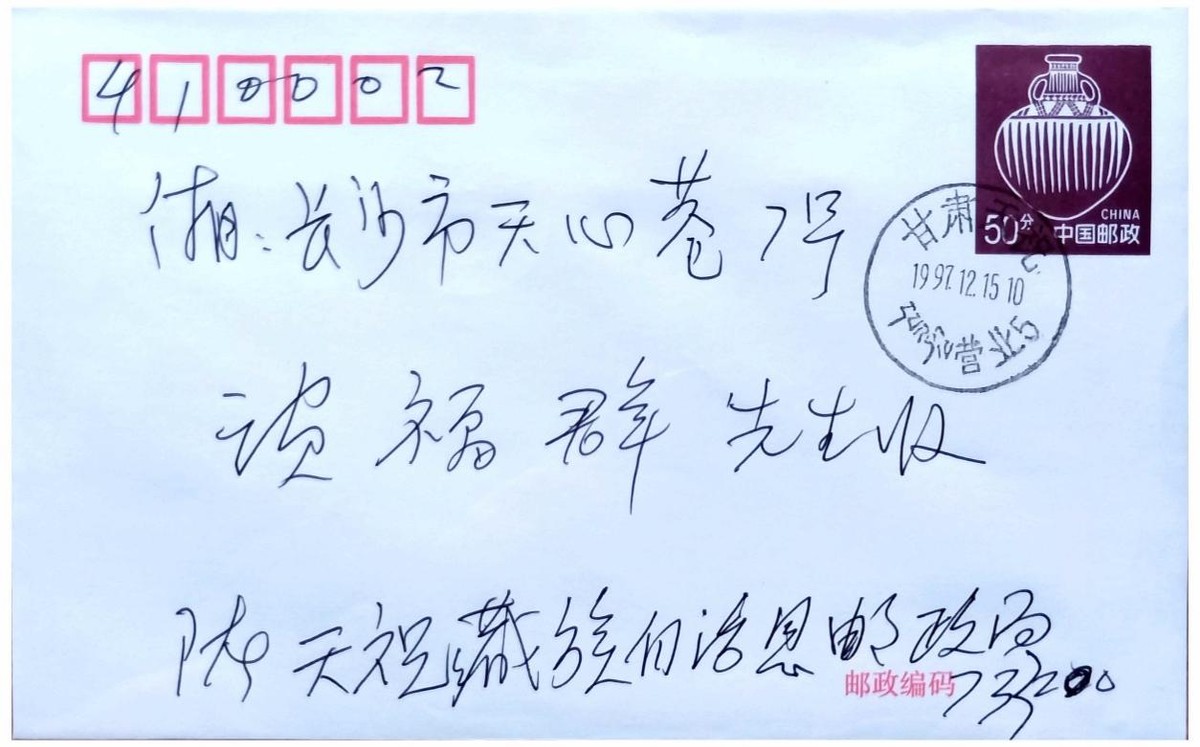 410002
50分 CHINA
中国邮政
甘肃天祝
1997.12.15 10
营业5
湘:长沙市天心巷7号
谈福群先生收
陇天祝藏族自治县邮政局
邮政编码 733200